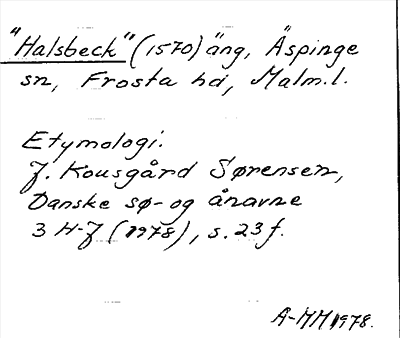 "Halsbeck" (1570) äng, Äspinge
sn, Frosta hd, Malm.l.
Etymologi.
J. Kousgård Sørensen,
Danske sø- og ånavne
3 H-J (1978), s. 23 f.
A-MM 1978.